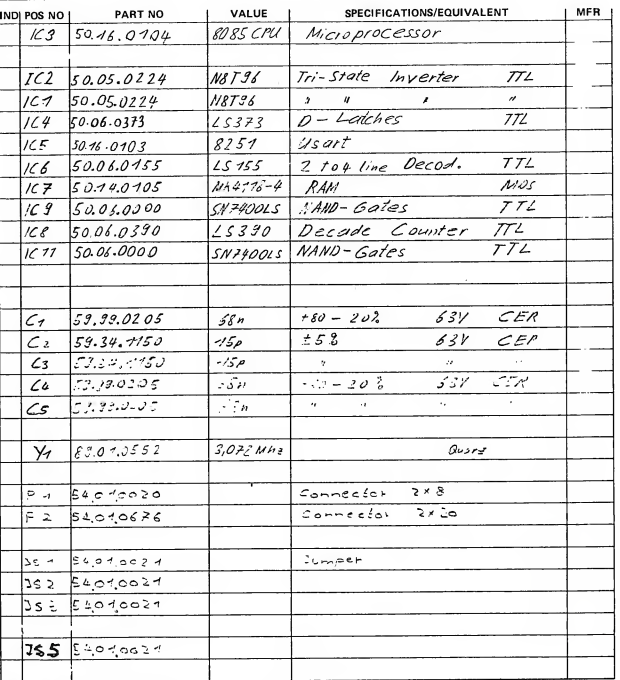 IND POS NO PART NO VALUE SPECIFICATIONS/EQUIVALENT MFR
IC3 50.16.0104 8085 CPU Microprocessor
IC2 50.05.0224 N8T96 Tri-State Inverter TTL
IC1 50.05.0224 N8T96 " " " "
IC4 50.06.0373 LS373 D-Latches TTL
IC5 50.16.0103 8251 Usart
IC6 50.06.0155 LS155 2 to 4 line Decod. TTL
IC7 50.14.0105 MK4118-4 RAM MOS
IC9 50.06.0000 SN7400LS NAND-Gates TTL
IC8 50.06.0390 LS390 Decade Counter TTL
IC11 50.06.0000 SN7400LS NAND-Gates TTL
C1 59.99.0205 68n +80 - 20% 63V CER
C2 59.34.1150 15p ±5% 63V CER
C3 15p " " "
C4 59.99.0205 - 20% 63V CER
C5 " " "
Y1 89.01.0552 3,072 MHz Quarz
P1 54.01.0020 Connector 2x8
P2 54.01.0676 Connector 2x20
JS1 54.01.0021 Jumper
JS2 54.01.0021
JS3 54.01.0021
JS5 54.01.0021